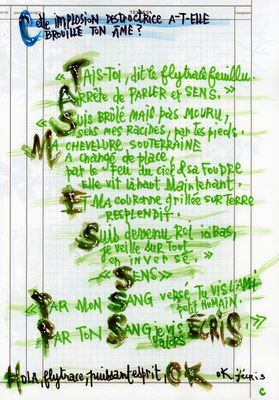 Celle IMPLOSION DESTRUCTRICE A-T-ELLE
BROUILLÉ TON ÂME ?
« TAIS-TOI, dit le flytrace feuillu.
ARRÊTE de PARLER et SENS. »
« SUIS BRÛLÉ MAIS PAS MOURU,
sens mes racines, par tes pieds.
MA CHEVELURE SOUTERRAINE
A CHANGÉ de place
par le feu du ciel & sa FOUDRE
Elle vit là haut Maintenant.
ET MA COURONNE grillée SUR TERRE
RESPLENDIT.
SUIS devenu ROI ici BAS,
je veille sur Tout
en inverse. »
« SENS »
« PAR MON SANG versé TU VIS L'AMI
petit HUMAIN.
PAR TON SANG je vis
alors ÉCRIS. »
OLA, flytrace, puissant esprit, OK
OK j'écris
C